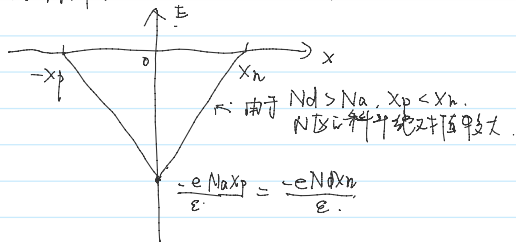 E
-Xp
0
Xn
X
由于 Nd > Na, Xp < Xn.
N区 斜率绝对值较大
-eNaXp/ε = -eNdXn/ε.